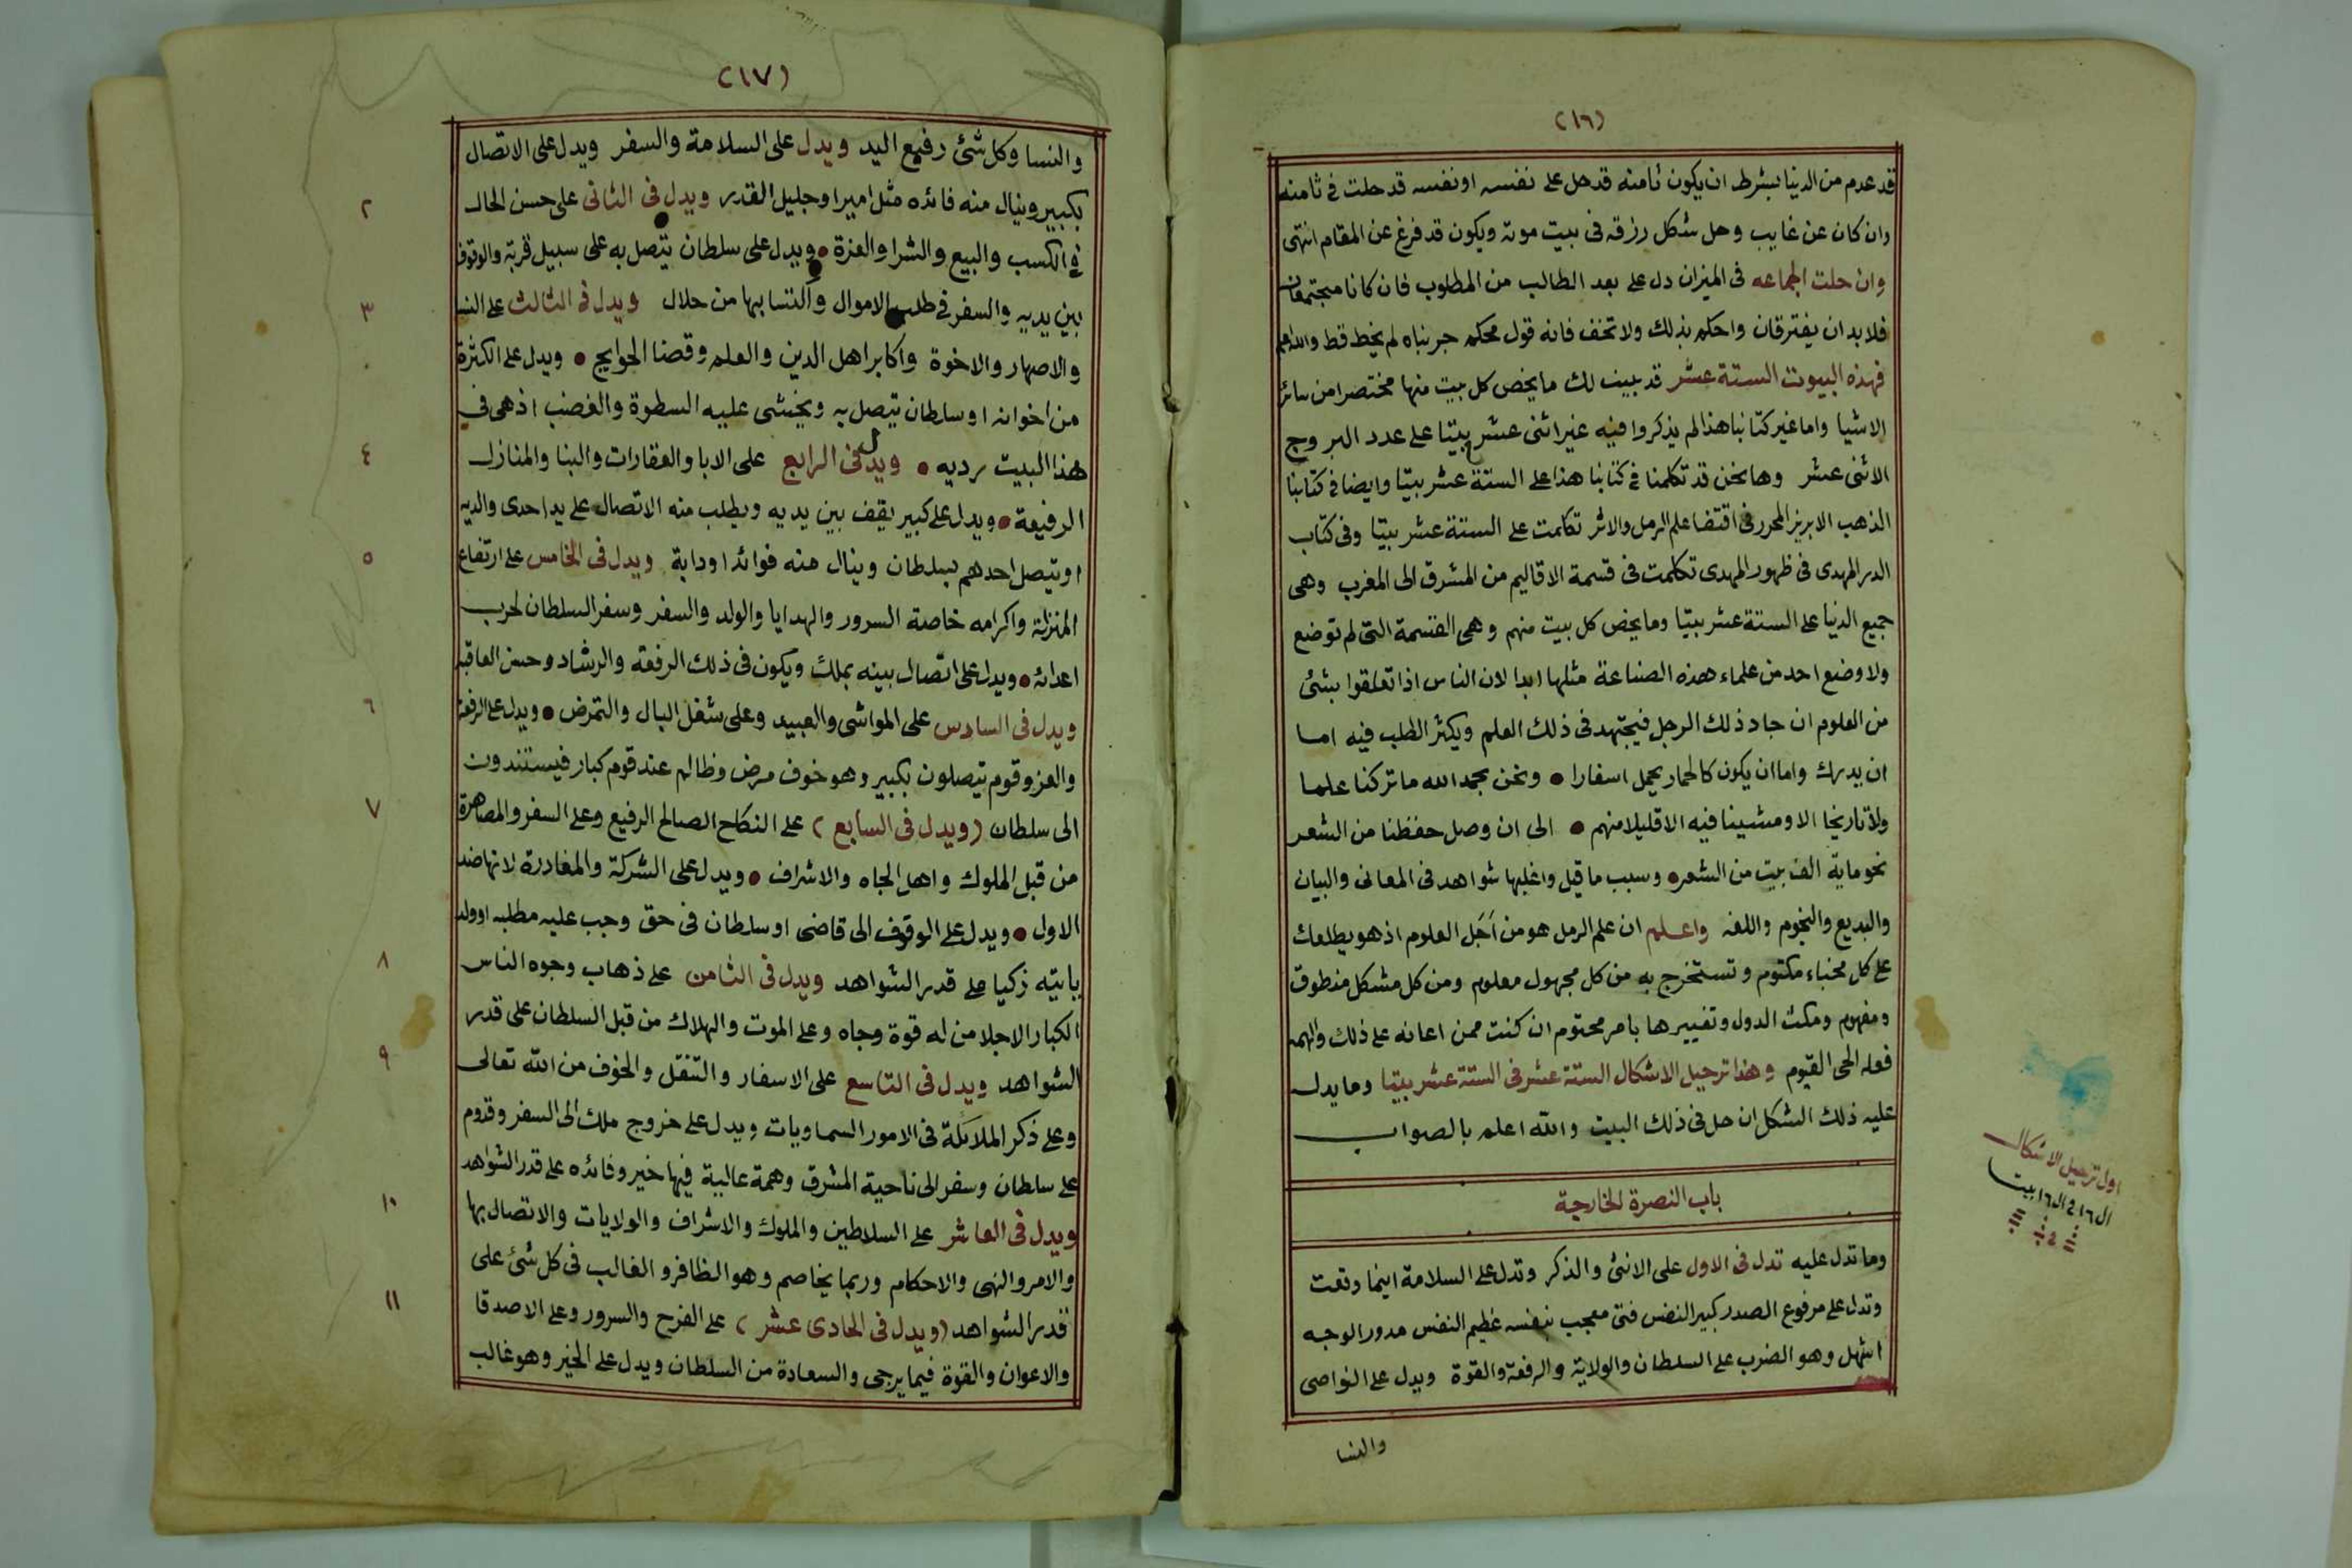 (١٦)
قد عدم من الدنيا بشرط ان يكون ثامنه قد حل على نفسه او نفسه قد حلت فى ثامنه
وان كان عن غايب وحل شكل رزقه فى بيت موته ويكون قد فرغ عن المقام انتهى
وان حلت الجماعه فى الميزان دل على بعد الطالب من المطلوب فان كانا مجتمعان
فلابد ان يفترقان واحكم بذلك ولا تخف فانه قول محكم جربناه لم يخط قط والله اعلم
فهذه البيوت الستة عشر قد بينت لك ما يخص كل بيت منها مختصرا من سائر
الاشيا واما غير كتابنا هذا لم يذكروا فيه غير اثنى عشر بيتا على عدد البروج
الاثنى عشر وها نحن قد تكلمنا فى كتابنا هذا على الستة عشر بيتا وايضا فى كتابنا
الذهب الابريز المحرر فى اقتضا علم الرمل والاثر تكلمت على الستة عشر بيتا وفى كتاب
الدر المهدى فى ظهور المهدى تكلمت فى قسمة الاقاليم من المشرق الى المغرب وهى
جميع الدنيا على الستة عشر بيتا وما يخص كل بيت منهم وهى القسمة التى لم توضع
ولا وضع احد من علماء هذه الصناعة مثلها ابدا لان الناس اذا تعلقوا بشئ
من العلوم ان جاد ذلك الرجل فيجتهد فى ذلك العلم ويكثر الطلب فيه اما
ان يدرك واما ان يكون كالحمار يحمل اسفارا • ونحن بحمد الله ما تركنا علما
ولا تاريخا الا ومشينا فيه الا قليلا منهم • الى ان وصل حفظنا من الشعر
نحو ماية الف بيت من الشعر • وسبب ما قيل واغلبها شواهد فى المعانى والبيان
والبديع والنجوم واللغه واعلم ان علم الرمل هو من اَجَل العلوم اذ هو يطلعك
على كل مخباء مكتوم وتستخرج به من كل مجهول معلوم ومن كل مشكل منطوق
ومفهوم ومكث الدول وتغييرها بامر محتوم ان كنت ممن اعانه على ذلك والهمه
فعله الحى القيوم وهذا ترحيل الاشكال الستة عشر فى الستة عشر بيتا وما يدل
عليه ذلك الشكل ان حل فى ذلك البيت والله اعلم بالصواب
باب النصرة الخارجية
وما تدل عليه تدل فى الاول على الانثى والذكر وتدل على السلامة اينما وقعت
وتدل على مرفوع الصدر كبير النفس فتى معجب بنفسه عظيم النفس مدور الوجه
اشهل وهو الضرب على السلطان والولاية والرفعة والقوة ويدل على النواصى
والنسا
اول ترحيل الاشكال
ال١٦ فى ال١٦ بيت
(١٧)
والنسا وكل شئ رفيع اليد ويدل على السلامة والسفر ويدل على الاتصال
بكبير وينال منه فائده مثل امير او جليل القدر ويدل فى الثانى على حسن الحال
٢
فى الكسب والبيع والشرا والعزة • ويدل على سلطان يتصل به على سبيل قربة والوقوف
بين يديه والسفر فى طلب الاموال واكتسابها من حلال ويدل فى الثالث على النسا
٣
والاصهار والاخوة واكابر اهل الدين والعلم وقضا الحوايج • ويدل على الكثرة
من اخوانه او سلطان يتصل به ويخشى عليه السطوة والغضب اذ هى فى
هذا البيت رديه • ويدل فى الرابع على الابا والعقارات والبنا والمنازل
٤
الرفيعة • ويدل على كبير يقف بين يديه ويطلب منه الاتصال على يد احدى والديه
او يتصل احدهم بسلطان وينال منه فوائد او دابة ويدل فى الخامس على ارتفاع
٥
المنزلة واكرامه خاصة السرور والهدايا والولد والسفر وسفر السلطان لحرب
اعدائه • ويدل على اتصال بينه بملك ويكون فى ذلك الرفعة والرشاد وحسن العاقبه
ويدل فى السادس على المواشى والعبيد وعلى شغل البال والتمرض • ويدل على الرفعة
٦
والعز وقوم يتصلون بكبير وهو خوف مرض وظالم عند قوم كبار فيستندون
الى سلطان (ويدل فى السابع) على النكاح الصالح الرفيع وعلى السفر والمصاهرة
٧
من قبل الملوك واهل الجاه والاشراف • ويدل على الشركة والمغادرة لانها ضد
الاول • ويدل على الوقوف الى قاضى او سلطان فى حق وجب عليه مطلبه او ولد
ياتيه زكيا على قدر الشواهد ويدل فى الثامن على ذهاب وجوه الناس
٨
الكبار الاجلا من له قوة وجاه وعلى الموت والهلاك من قبل السلطان على قدر
الشواهد ويدل فى التاسع على الاسفار والتنقل والخوف من الله تعالى
٩
وعلى ذكر الملائكة فى الامور السماويات ويدل على خروج ملك الى السفر وقدوم
على سلطان وسفر الى ناحية المشرق وهمة عالية فيها خير وفائده على قدر الشواهد
ويدل فى العاشر على السلاطين والملوك والاشراف والولايات والاتصال بها
١٠
والامر والنهى والاحكام وربما يخاصم وهو الظافر والغالب فى كل شئ على
قدر الشواهد (ويدل فى الحادى عشر) على الفرح والسرور وعلى الاصدقا
١١
والاعوان والقوة فيما يرجى والسعادة من السلطان ويدل على الخير وهو غالب